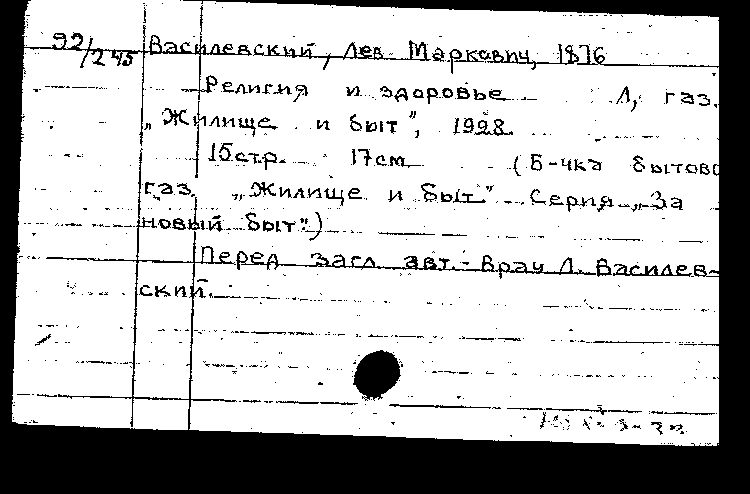 92/245 Василевский, Лев Маркович, 1876
Религия и здоровье Л, газ.
„Жилище и быт", 1928.
15стр. 17см. (Б-чка бытово
газ. „Жилище и быт" Серия „За
новый быт".)
Перед загл. авт.- врач Л. Василев-
ский.